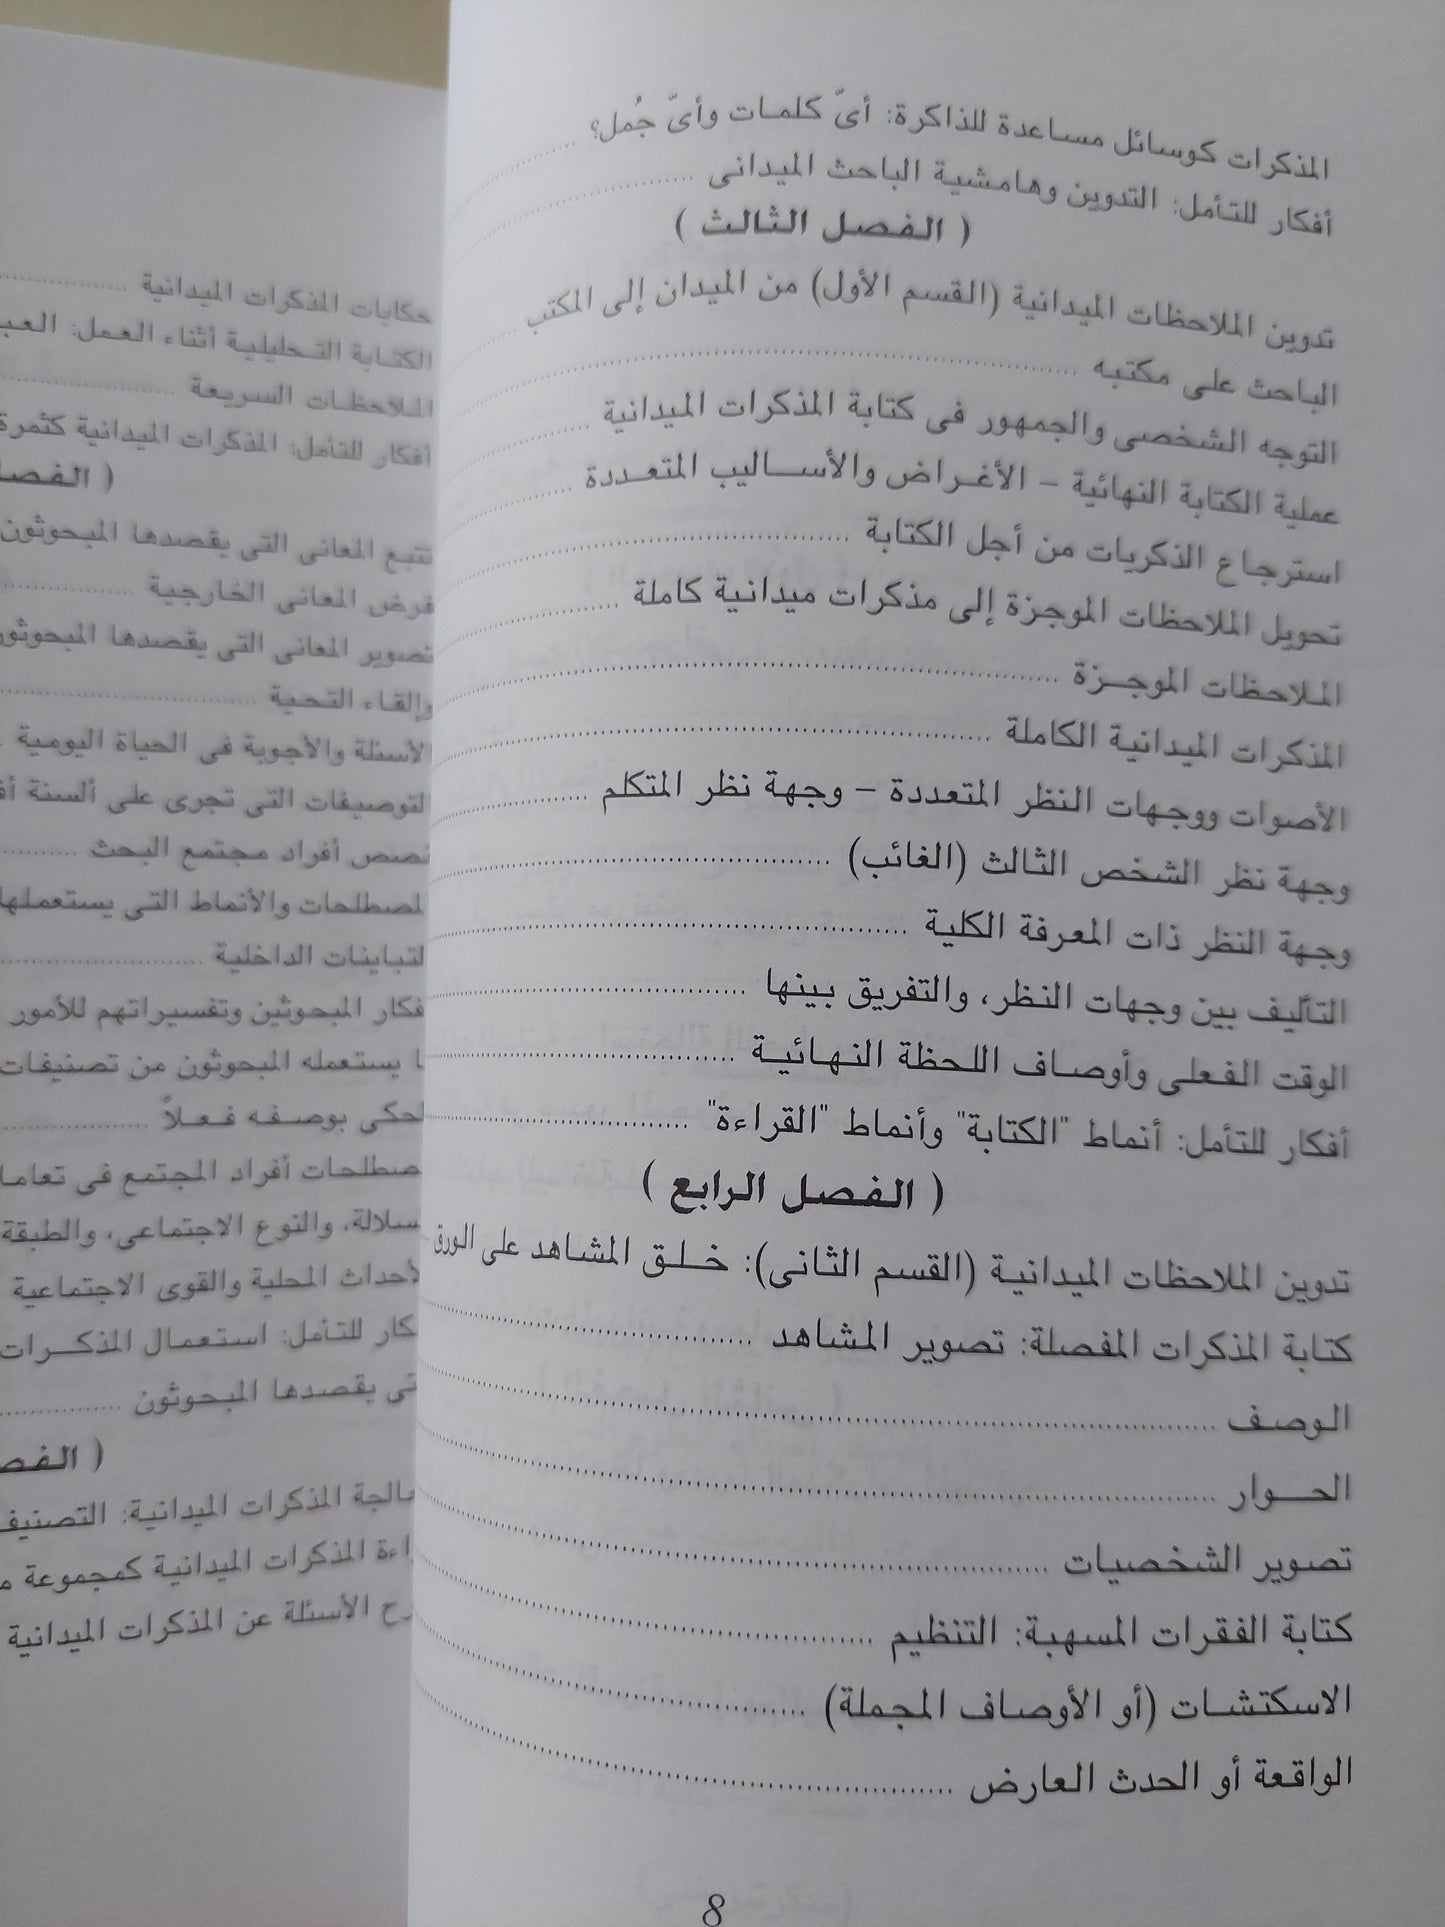 المذكرات كوسائل مساعدة للذاكرة: أىّ كلمات وأىّ جُمل؟
أفكار للتأمل: التدوين وهامشية الباحث الميدانى
( الفصل الثالث )
تدوين الملاحظات الميدانية (القسم الأول) من الميدان إلى المكتب
الباحث على مكتبه
التوجه الشخصى والجمهور فى كتابة المذكرات الميدانية
عملية الكتابة النهائية – الأغراض والأساليب المتعددة
استرجاع الذكريات من أجل الكتابة
تحويل الملاحظات الموجزة إلى مذكرات ميدانية كاملة
الملاحظات الموجزة
المذكرات الميدانية الكاملة
الأصوات ووجهات النظر المتعددة – وجهة نظر المتكلم
وجهة نظر الشخص الثالث (الغائب)
وجهة النظر ذات المعرفة الكلية
التأليف بين وجهات النظر، والتفريق بينها
الوقت الفعلى وأوصاف اللحظة النهائية
أفكار للتأمل: أنماط "الكتابة" وأنماط "القراءة"
( الفصل الرابع )
تدوين الملاحظات الميدانية (القسم الثانى): خلق المشاهد على الورق
كتابة المذكرات المفصلة: تصوير المشاهد
الوصف
الحوار
تصوير الشخصيات
كتابة الفقرات المسهبة: التنظيم
الاسكتشات (أو الأوصاف المجملة)
الواقعة أو الحدث العارض
8
حكايات المذكرات الميدانية
الكتابة التحليلية أثناء العمل:
الملاحظات السريعة
أفكار للتأمل: المذكرات الميدانية كثمرة
تتبع المعانى التى يقصدها المبحوثون
فرض المعانى الخارجية
تصوير المعانى التى يقصدها
وإلقاء التحية
الأسئلة والأجوبة فى الحياة اليومية
التى تجرى على ألسنة
أفراد مجتمع البحث
والأنماط التى يستعملها
الداخلية
المبحوثين وتفسيراتهم للأمور
يستعمله المبحوثون من تصنيفات
بوصفه فعلاً
أفراد المجتمع فى
والنوع الاجتماعى، والطبقة
المحلية والقوى الاجتماعية
للتأمل: استعمال المذكرات
يقصدها المبحوثون
المذكرات الميدانية:
المذكرات الميدانية كمجموعة
الأسئلة عن المذكرات الميدانية